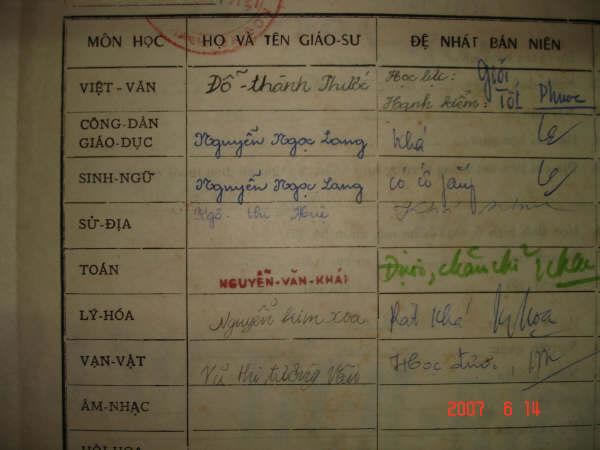 MÔN HỌC HỌ VÀ TÊN GIÁO-SƯ ĐỆ NHẤT BÁN NIÊN
VIỆT-VĂN Đỗ-thành Phước Học lực: Giỏi
Hạnh kiểm: Tốt Phuoc
CÔNG-DÂN
GIÁO-DỤC Nguyễn Ngọc Lang Khá
SINH-NGỮ Nguyễn Ngọc Lang có cố gắng
SỬ-ĐỊA Ngô thi Huệ Khá
TOÁN NGUYỄN-VĂN-KHÁI Được, chăm chỉ
LÝ-HÓA Nguyễn kim xoa Rất Khá
VẠN-VẬT Vũ thi tường Vân Học được,
ÂM-NHẠC
2007 6 14
HỘI-HỌA